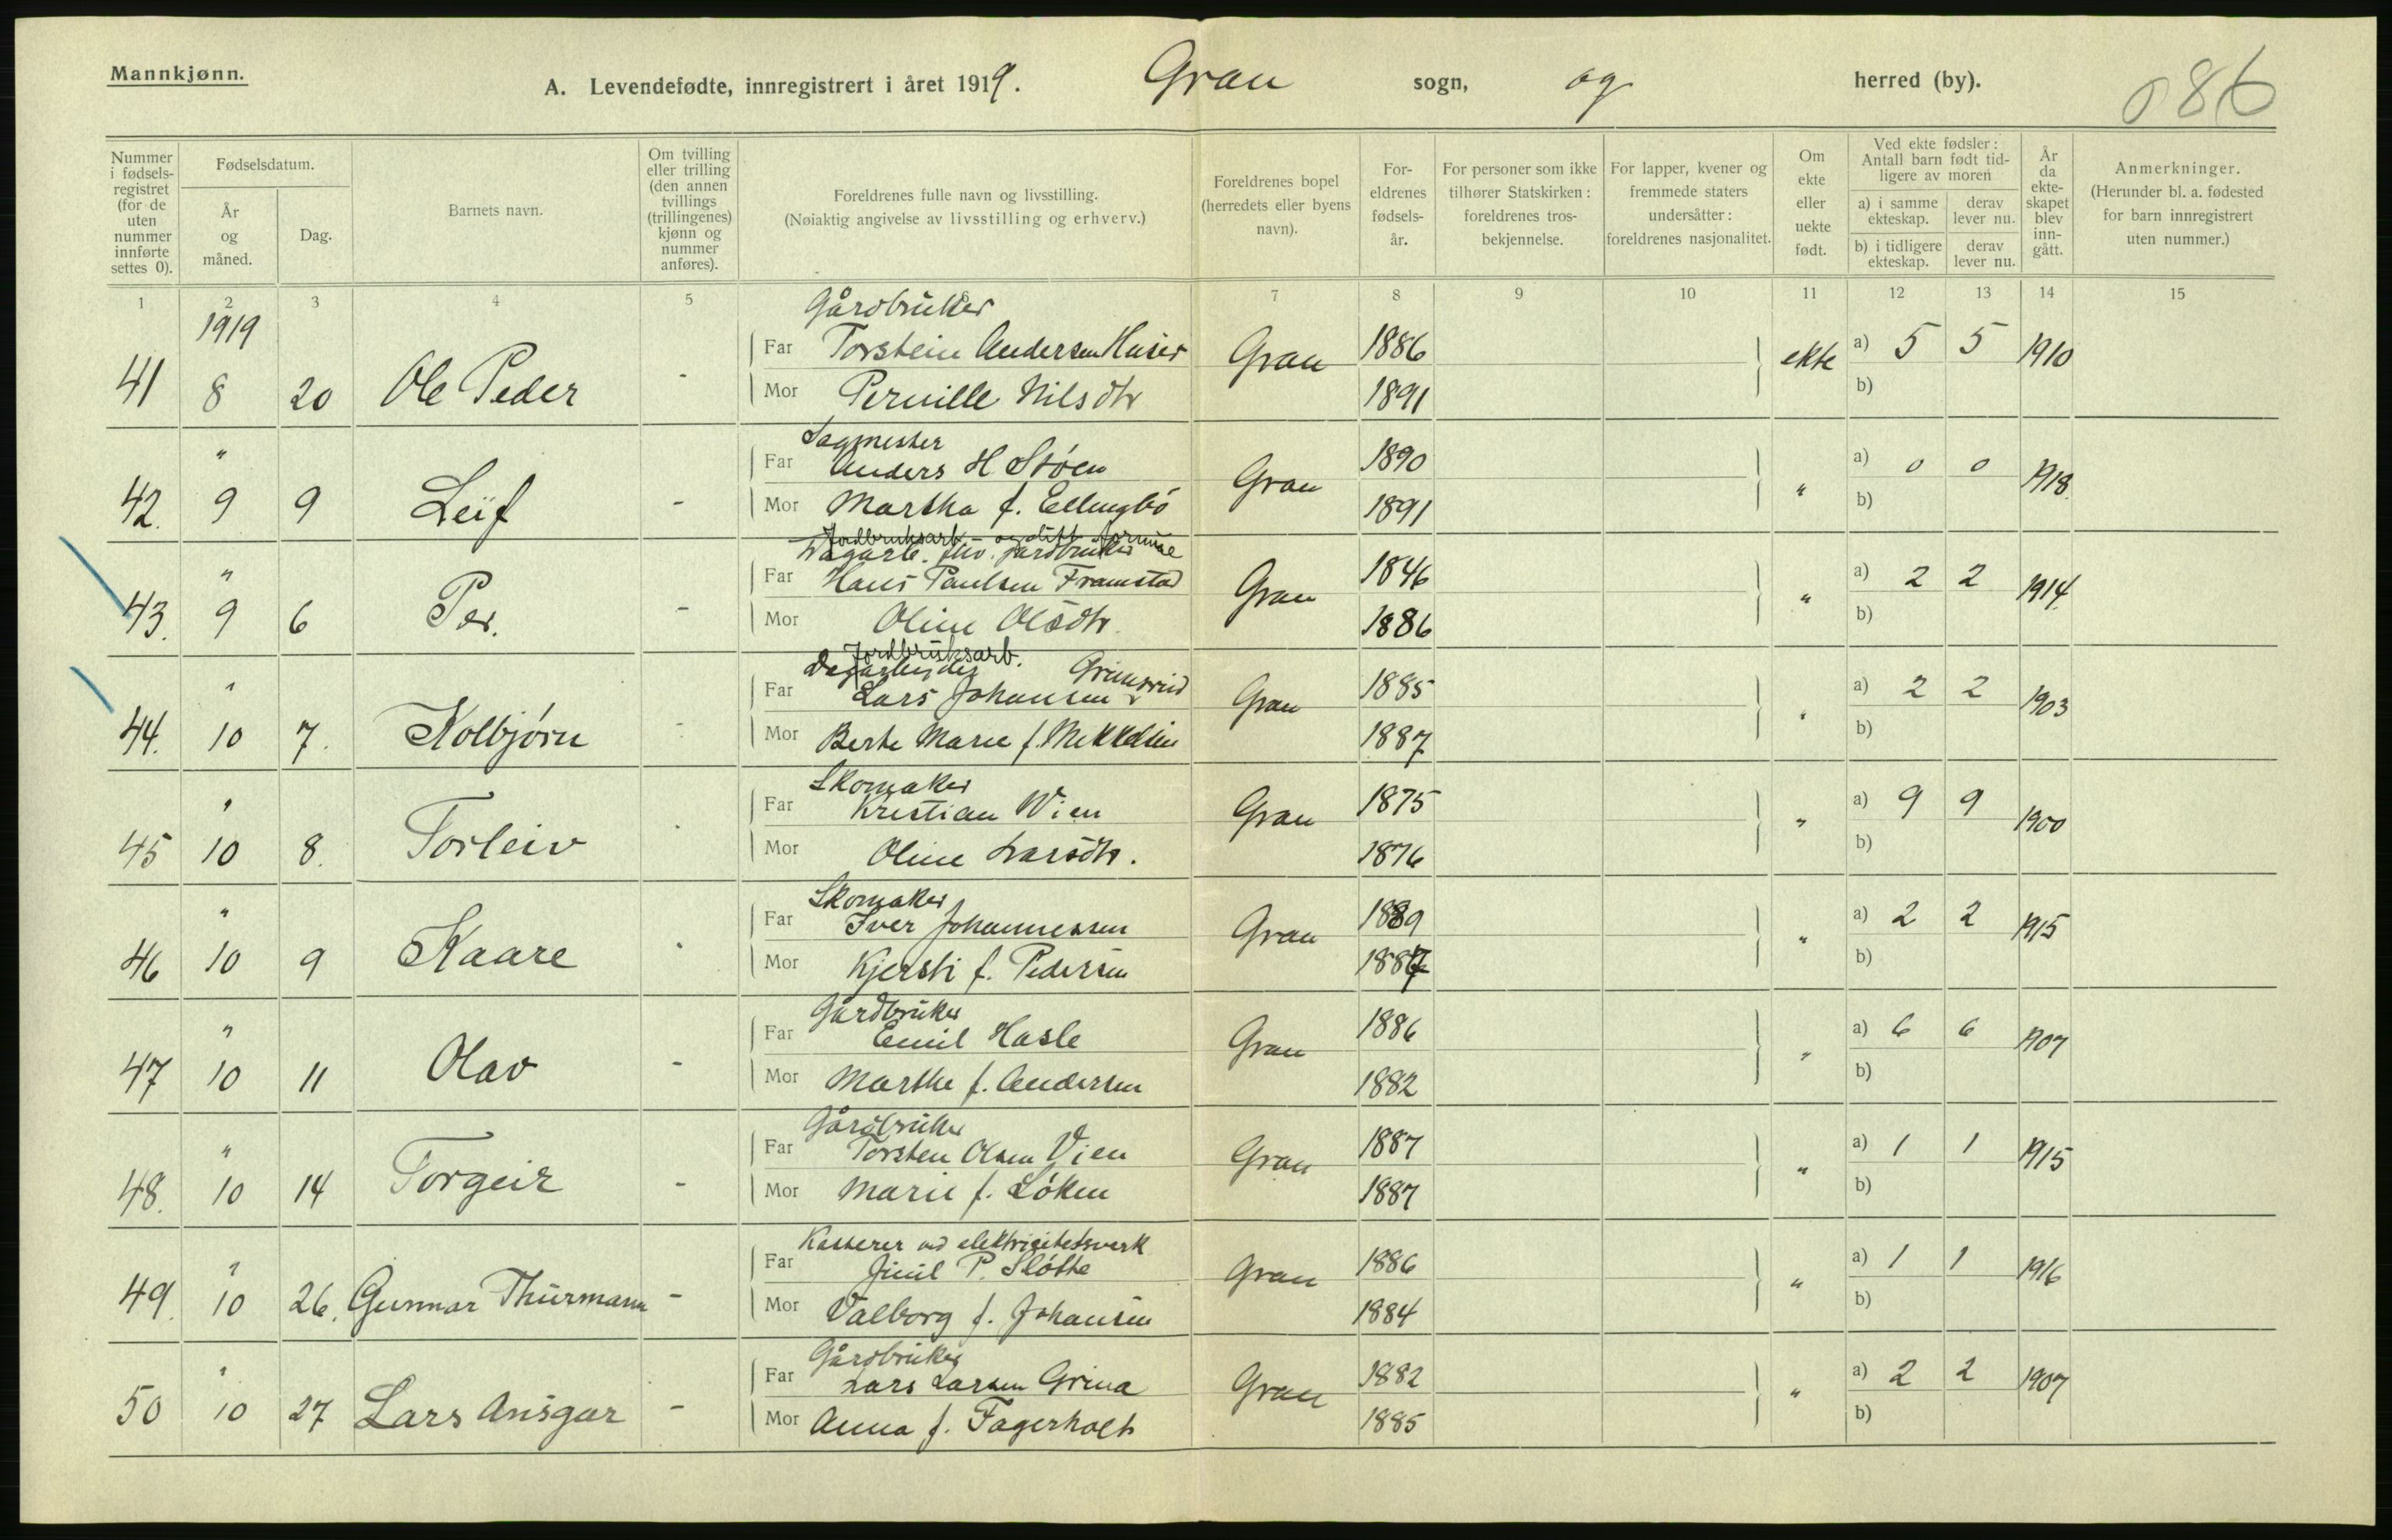 Mannkjønn.
A. Levendefødte, innregistrert i året 1919. Gran sogn, og herred (by). 086
Nummer i fødsels-registret (for de uten nummer innførte settes 0).
Fødselsdatum.
År og måned.
Dag.
Barnets navn.
Om tvilling eller trilling (den annen tvillings (trillingenes) kjønn og nummer anføres).
Foreldrenes fulle navn og livsstilling.
(Nøiaktig angivelse av livsstilling og erhverv.)
Foreldrenes bopel (herredets eller byens navn).
For-eldrenes fødsels-år.
For personer som ikke tilhører Statskirken: foreldrenes tros-bekjennelse.
For lapper, kvener og fremmede staters undersåtter: foreldrenes nasjonalitet.
Om ekte eller uekte født.
Ved ekte fødsler: Antall barn født tid-ligere av moren
a) i samme ekteskap.
derav lever nu.
b) i tidligere ekteskap.
derav lever nu.
År da ekte-skapet blev inn-gått.
Anmerkninger.
(Herunder bl. a. fødested for barn innregistrert uten nummer.)
1 2 3 4 5 6 7 8 9 10 11 12 13 14 15
1919
Gårdbruker
41 8 20 Ole Peder - Far Torstein Andersen Huser Gran 1886 ekte a) 5 5 1910
Mor Pernille Nilsdtr 1891 b)
Sagmester
42. " 9 9 Leif - Far Anders H Støen Gran 1890 " a) 0 0 1918
Mor Martha f. Ellingbø 1891 b)
Jordbruksarb.
43. " 9 6 Per. - Far Hans Paulsen Framstad Gran 1846 " a) 2 2 1914
Mor Oline Olsdtr. 1886 b)
Jordbruksarb.
Dagarbeider
44. " 10 7. Kolbjørn - Far Lars Johansen Grinsrud Gran 1885 " a) 2 2 1903
Mor Berte Marie f. Mikkelsen 1887 b)
Skomaker
45 " 10 8. Torleiv - Far Kristian Wien Gran 1875 " a) 9 9 1900
Mor Oline Larsdtr. 1876 b)
Skomaker
46 " 10 9 Kaare - Far Iver Johannessen Gran 1889 " a) 2 2 1915
Mor Kjersti f. Pedersen 1887 b)
Gårdbruker
47 " 10 11 Olav - Far Emil Hasle Gran 1886 " a) 6 6 1907
Mor Marthe f. Andersen 1882 b)
Gårdbruker
48. " 10 14 Torgeir - Far Torsten Olsen Vien Gran 1887 " a) 1 1 1915
Mor Marie f. Løken 1887 b)
Kasserer ved elektrisitetsverk
49. " 10 26. Gunnar Thurmann - Far P. Slåtte Gran 1886 " a) 1 1 1916
Mor Valborg f. Johansen 1884 b)
Gårdbruker
50 " 10 27 Lars Ansgar - Far Lars Larsen Grina Gran 1882 " a) 2 2 1907
Mor Anna f. Fagerholt 1885 b)